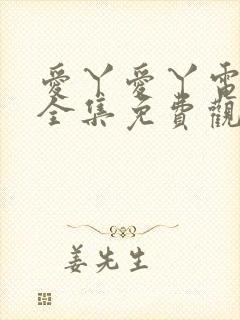 愛丫愛丫電
全集免費觀
姜先生